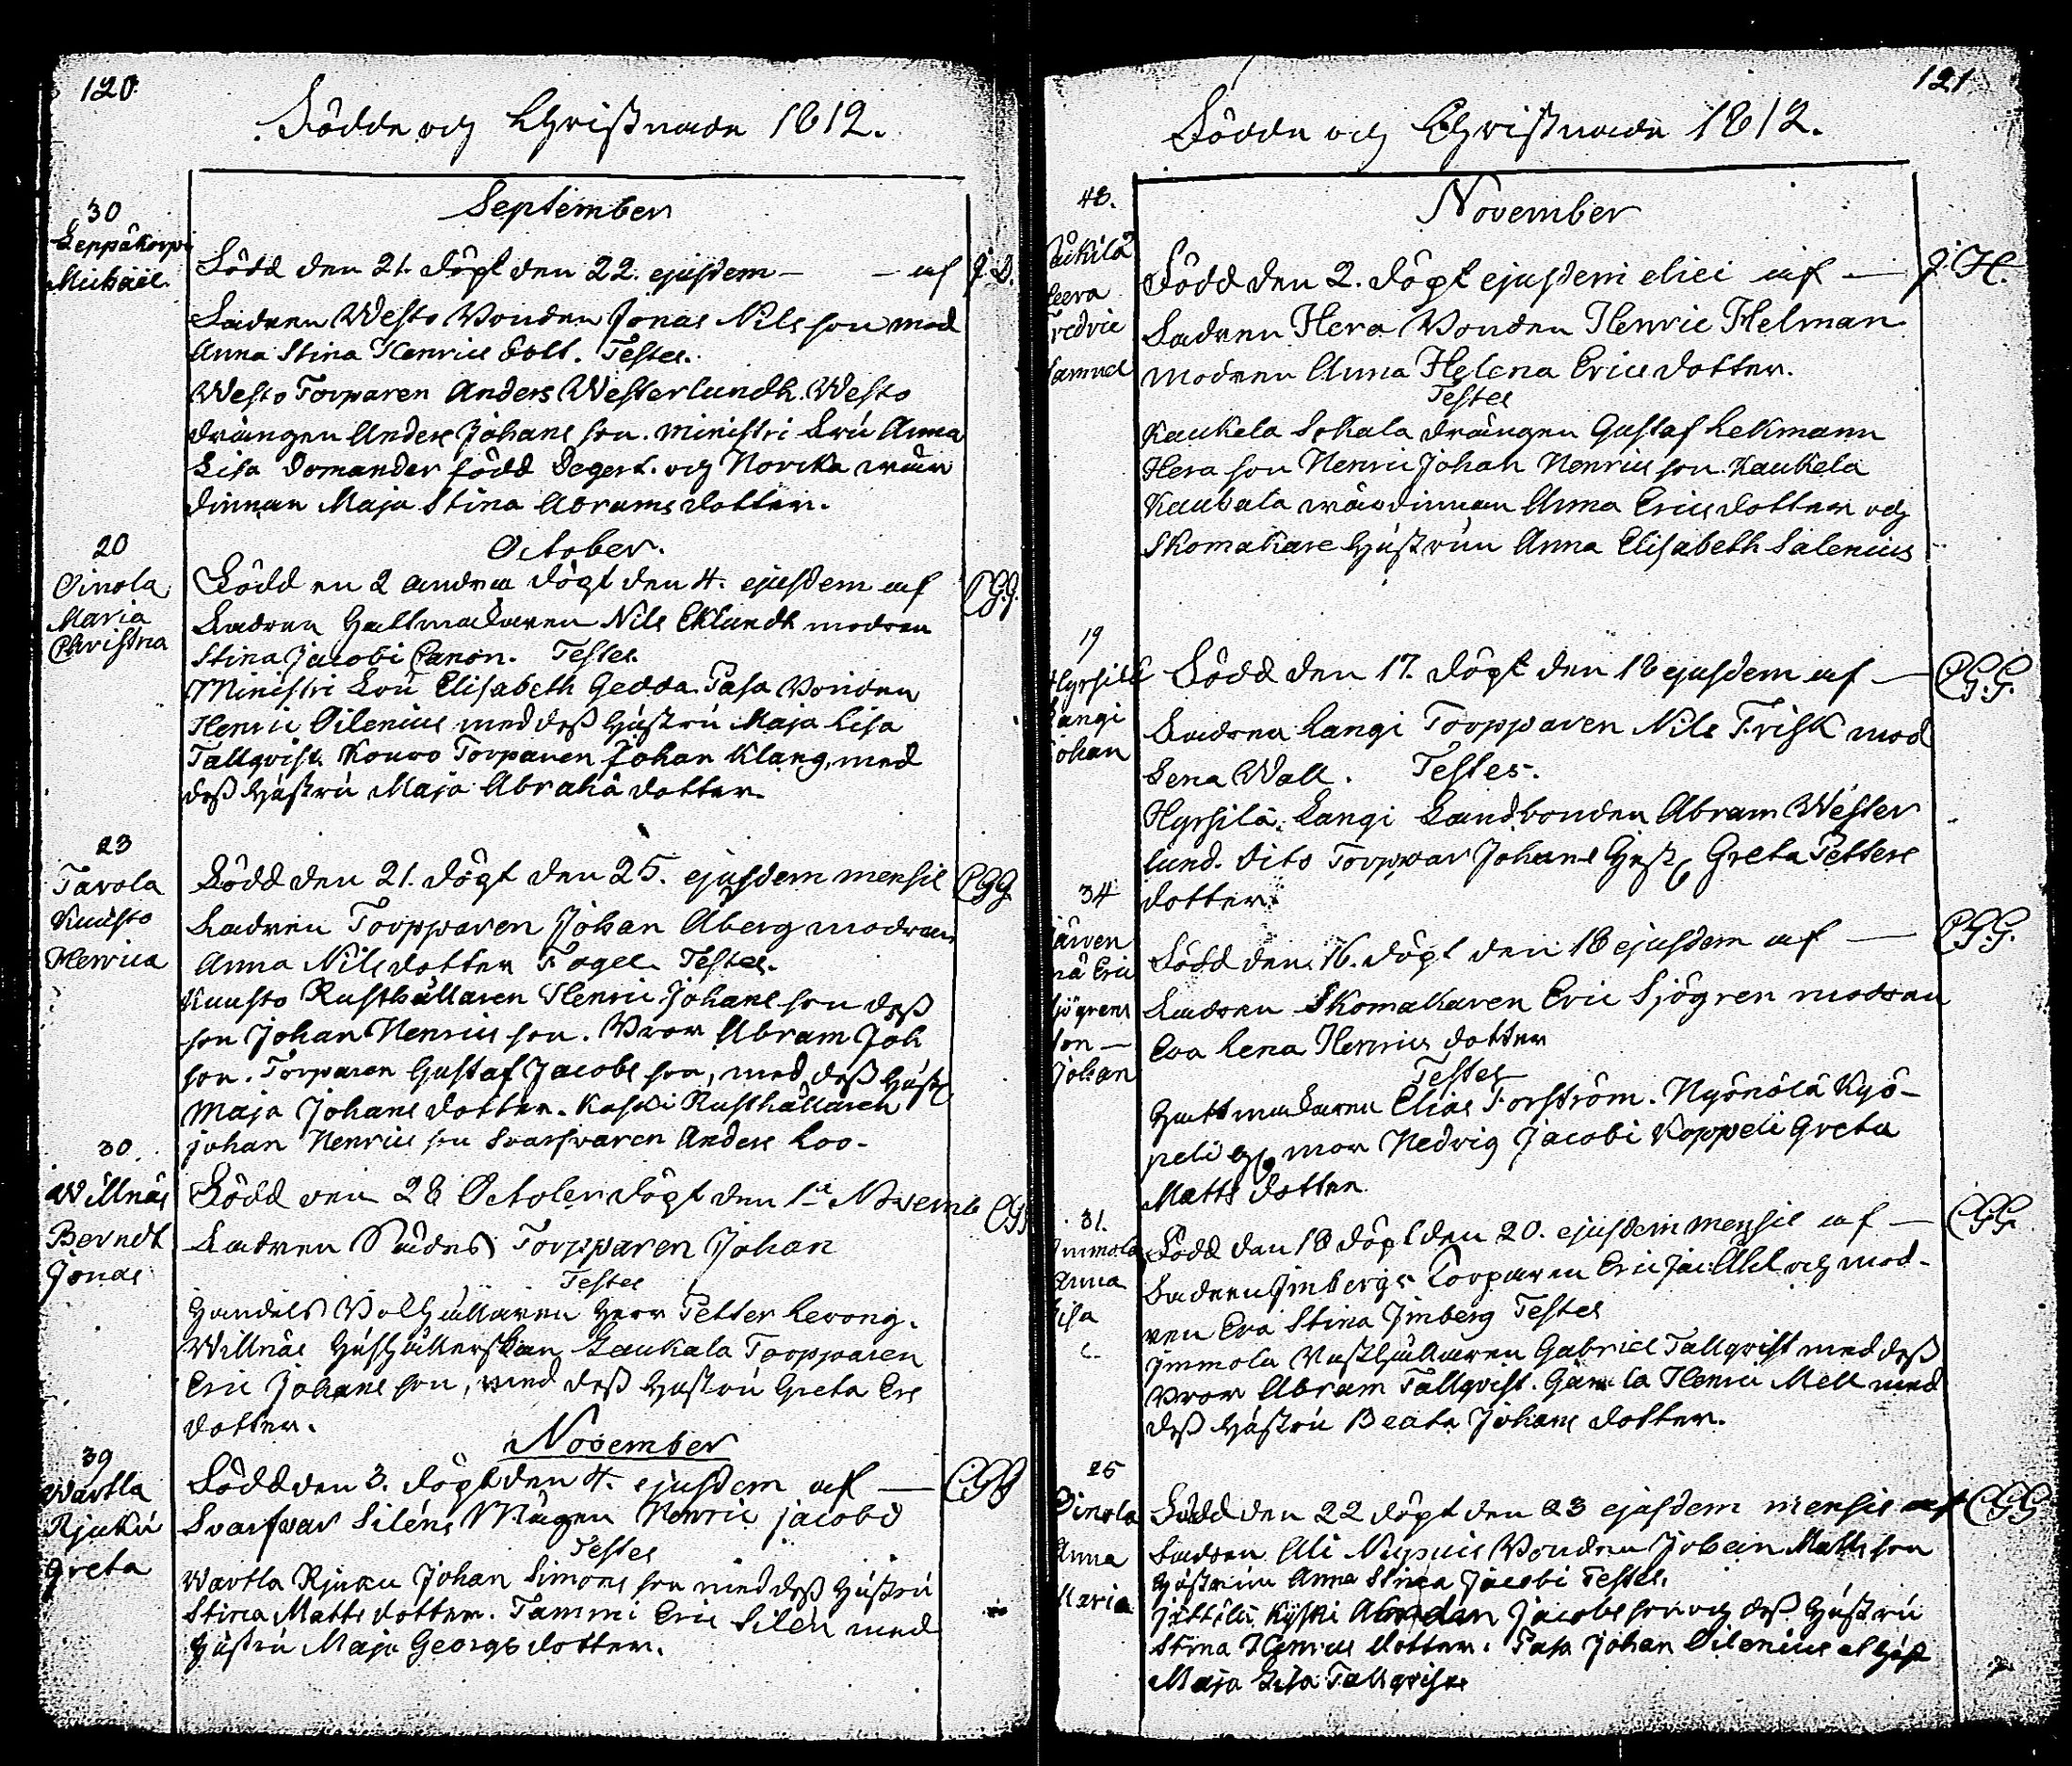 120
Födde och Christnade 1812.
September
30
Leppäkorpi
Michael.
Född den 21. döpt den 22. ejusdem — — af J.D.
Fadren Westo Bonden Jonas Nils son mod
Anna Stina Henrics dott. Testes.
Westo Torparen Anders Westerlundh. Westo
drängen Anders Johans son. ministri Fru Anna
Lisa Domander född Degert. och Norcka wär
dinnan Maja Stina Abrams dotter.
October.
20
Oinola
Maria
Christina
Född en 2 andra döpt den 4. ejusdem af CGG.
Fadren Hattmakaren Nils Eklundh modren
Stina Jacobi Canon. Testes.
Ministri Fru Elisabeth Gedda. Pasa Bonden
Henric Oilenius med dess hustru Maja Lisa
Tallqvist. Kouvo Torparen Johan Klang, med
dess hustru Maja Abrahä dotter.
23
Tarola
Knuisto
Henrica
Född den 21. döpt den 25. ejusdem mensis CGG
Fadren Torpparen Johan Aberg modren
Anna Nils dotter Fogel. Testes.
Kuusto Rusthållaren Henric Johans son dess
son Johan Henrics son. Bror Abram Joh
son. Torparen Gustaf Jacobs son, med dess hust
Maja Johans dotter. Kaski Rusthållaren
johan Henrics son Svarfvaren Anders Loo-
30.
Willnäs
Berndt
Jonas
Född den 28 October döpt den 1a Novemb CGG
Fadren Torpparen Johan
Testes
Handels Bokhållaren Herr Petter Levong.
Willnäs Hushållerskan Laukala Torpparen
Eric Johans son, med dess hustru Greta Ers
dotter.
November
39
Wartla
Rjuku
Greta
Född den 3. döpt den 4. ejusdem af — CGG
Svarfvar Siléns Mågen Henric jacobs
Testes
Wartla Rjuku Johan Simons son med dess hustru
Stina Matts dotter. Tammi Eric Silén med
hustru Maja Georgs dotter.
121
Födde och Christnade 1812.
November
48.
Heera
Fredric
Samuel
Född den 2. döpt ejusdem diei af — J.H.
Fadren Hera Bonden Henric Helman
modren Anna Helena Erics dotter.
Testes
Kaukela Sokala drängen Gustaf Lekmann
Hera son Henric Johan Henrics son. Kaukela
Kaubala wärdinnan Anna Erics dotter och
Skomakare hustrun Anna Elisabeth Salenius
19
Hyrsilä
Langi
Johan
Född den 17. döpt den 18 ejusdem af — CGG.
Fadren Langi Torpparen Nils Frisk mod
Lena Wall. Testes.
Hyrsilä Langi Landbonden Abram Wester
lund. dito Torppar Johans Hust Greta Petters
dotter.
34
Järven
pä Eric
Sjögrens
son —
Johan
Född den 16. döpt den 18 ejusdem af — CGG.
Fadren Skomakaren Eric Sjögren modren
Eva Lena Henrics dotter
Testes
Hattmakaren Elias Forström. Nyönölä Kyö-
peli mor Hedvig Jacobi Koppeli Greta
Matts dotter
31.
Immola
Anna
Lisa
Född den 18 döpt den 20. ejusdem mensis af — CGG.
Fadren Jmbergs Torparen Eric Jac. Ahl och mod-
ren Eva Stina Jmberg Testes
Jmmola Rusthållaren Gabriel Tallqvist med dess
Bror Abram Tallqvist. Gamla Henric Mell med
dess hustru Beata Johans dotter.
25
Oinola
Anna
Maria
Född den 22 döpt den 23 ejusdem mensis af CGG
Fadren Ali Nupuis Bonden Johan Matts son
Hustrun Anna Stina Jacobi Testes.
Jättilä Kyski Jacobs son och dess hustru
Stina Henrics dotter. Pasa Johan Oilenius et Hust
Maja Lisa Tallqvist